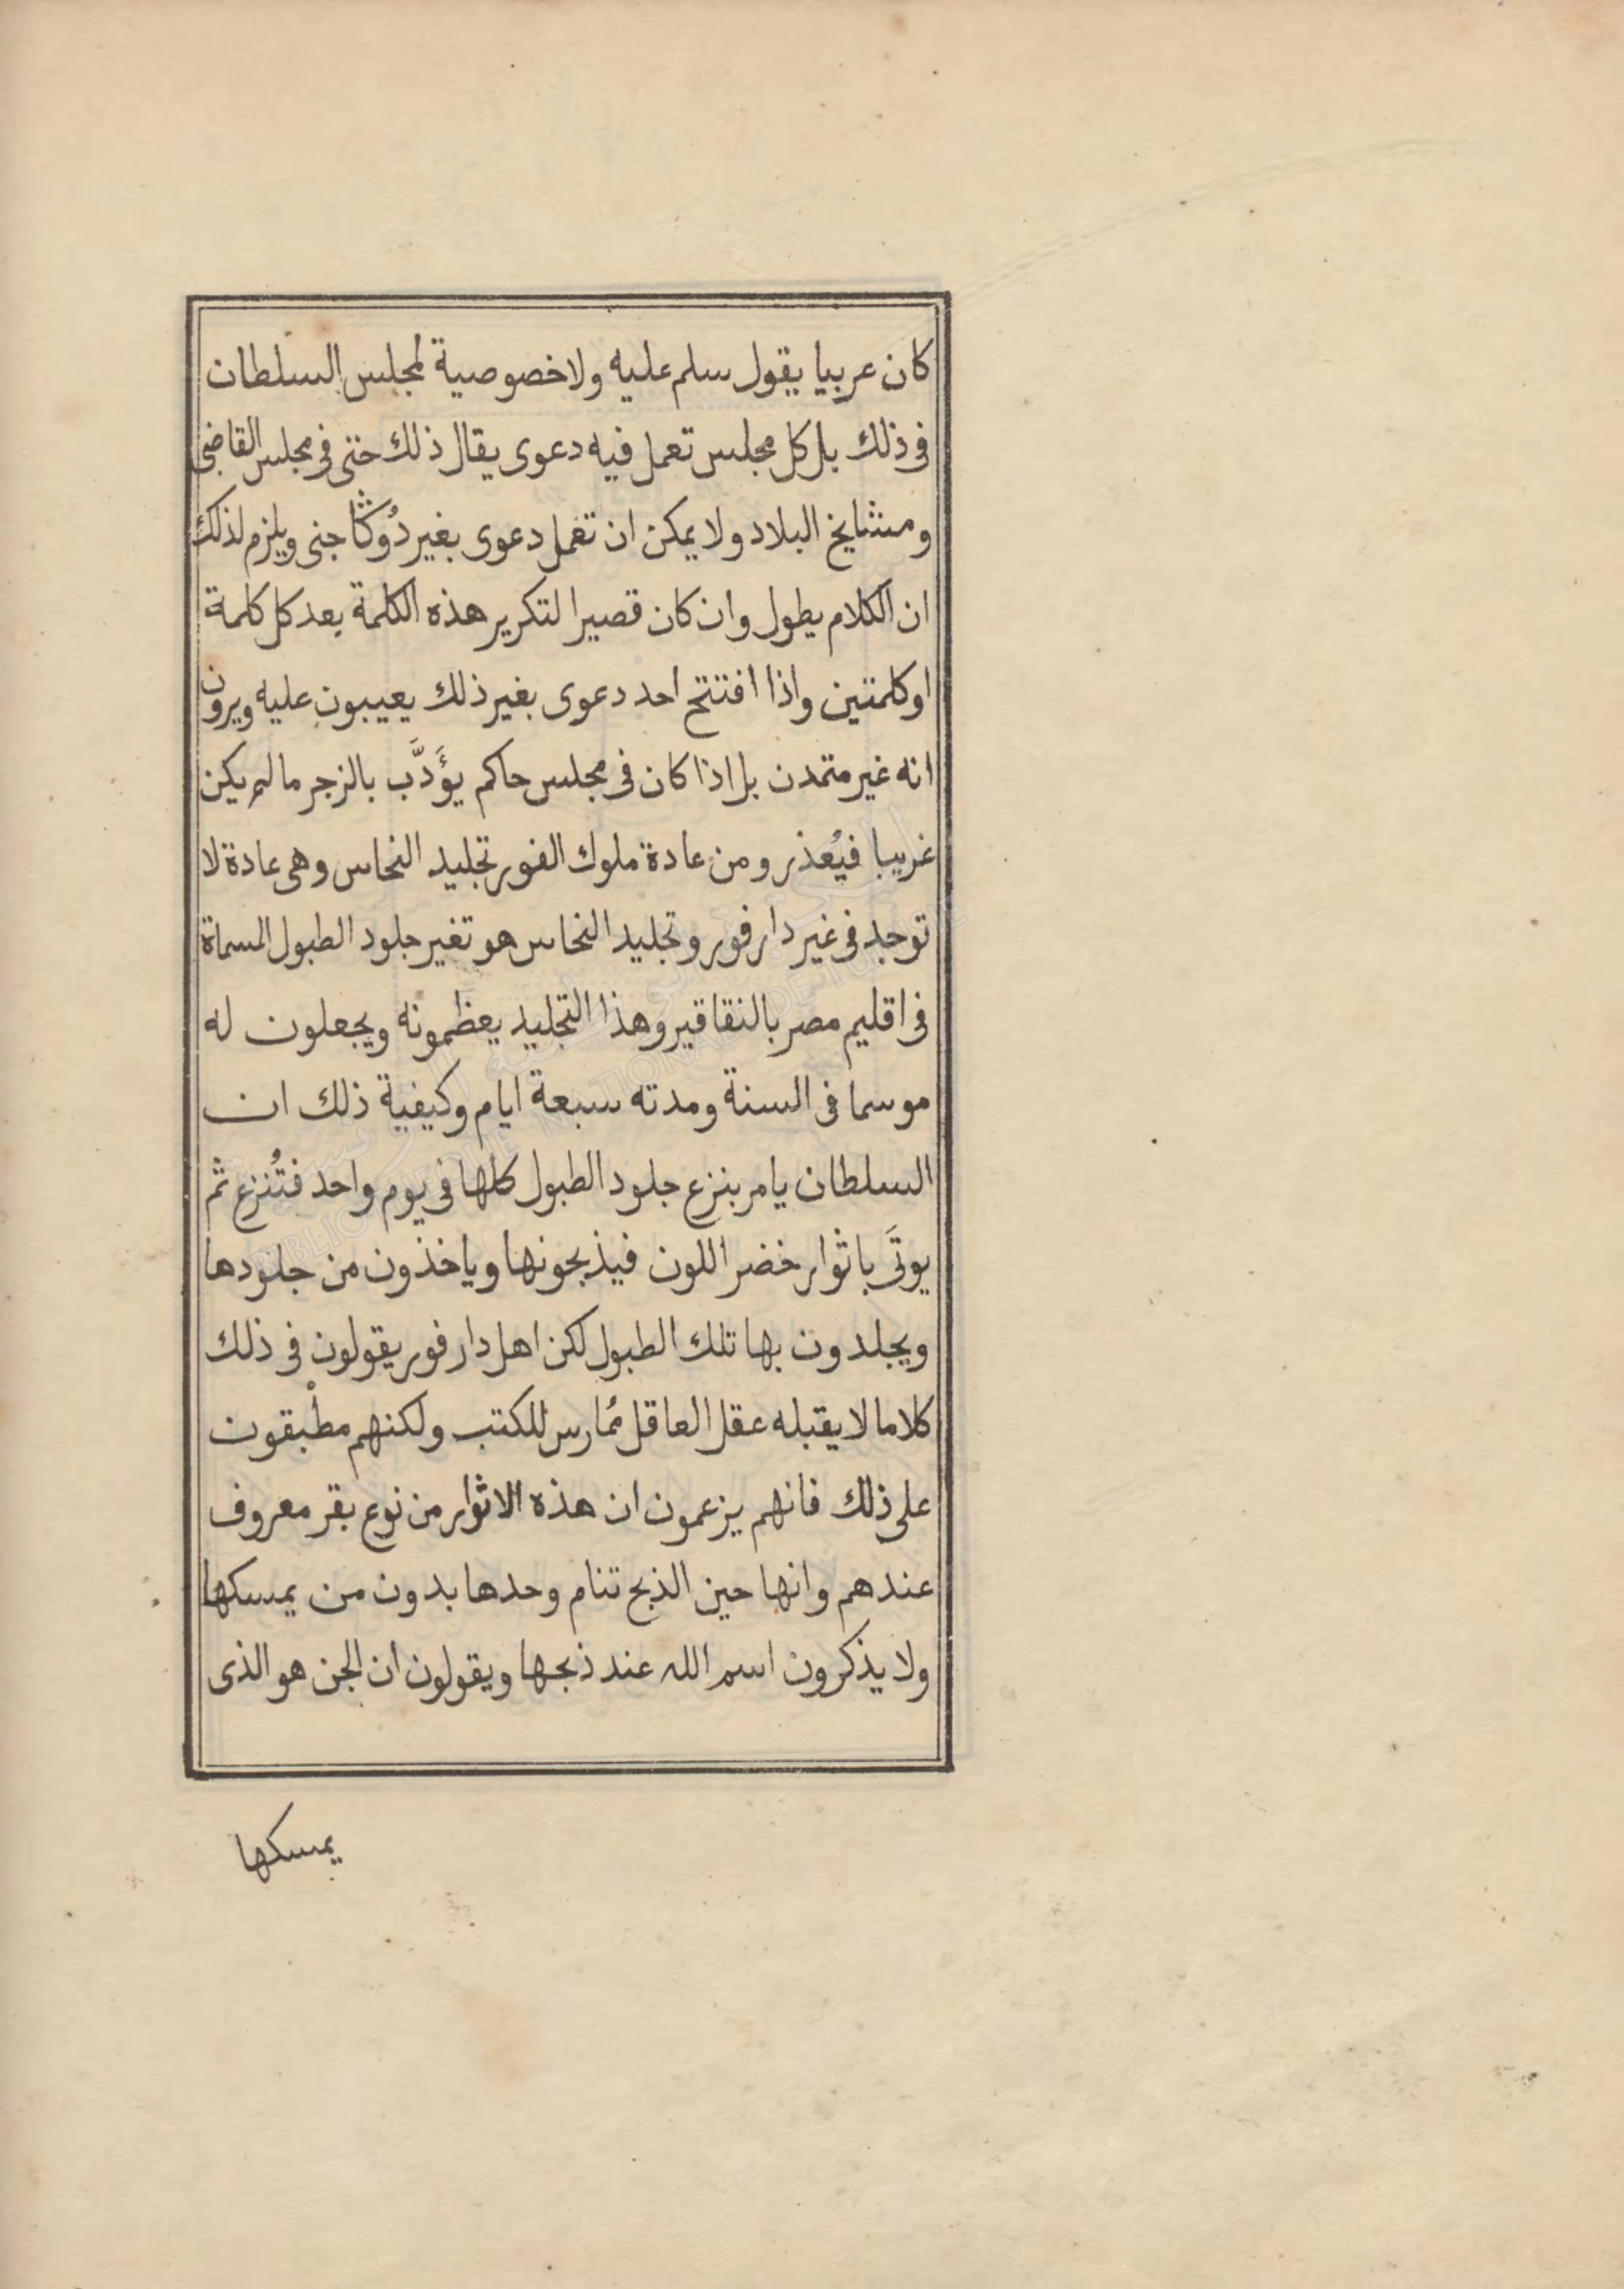 كان عربيا يقول سلم عليه ولا خصوصية لمجلس السلطان
فى ذلك بل كل مجلس تعمل فيه دعوى يقال ذلك حتى فى مجلس القاضى
ومشايخ البلاد ولا يمكن ان تعمل دعوى بغير دُوݣَا جنى ويلزم لذلك
ان الكلام يطول وان كان قصيرا لتكرير هذه الكلمة بعد كل كلمة
او كلمتين واذا افتتح احد دعوى بغير ذلك يعيبون عليه ويرون
انه غير متمدن بل اذا كان فى مجلس حاكم يؤَدَّب بالزجر ما لم يكن
غريبا فيُعذر ومن عادة ملوك الفور تجليد النحاس وهى عادة لا
توجد فى غير دار فور وتجليد النحاس هو تغير جلود الطبول المسماة
فى اقليم مصر بالنقاقير وهذا التجليد يعظمونه ويجعلون له
موسما فى السنة ومدته سبعة ايام وكيفية ذلك ان
السلطان يامر بنزع جلود الطبول كلها فى يوم واحد فتُنزع ثم
يوتَى باثوار خضر اللون فيذبحونها وياخذون من جلودها
ويجلدون بها تلك الطبول لكن اهل دار فور يقولون فى ذلك
كلاما لا يقبله عقل العاقل مُمارس للكتب ولكنهم مطْبقون
على ذلك فانهم يزعمون ان هذه الاثوار من نوع بقر معروف
عندهم وانها حين الذبح تنام وحدها بدون من يمسكها
ولا يذكرون اسم الله عند ذبحها ويقولون ان الجن هو الذى
يمسكها